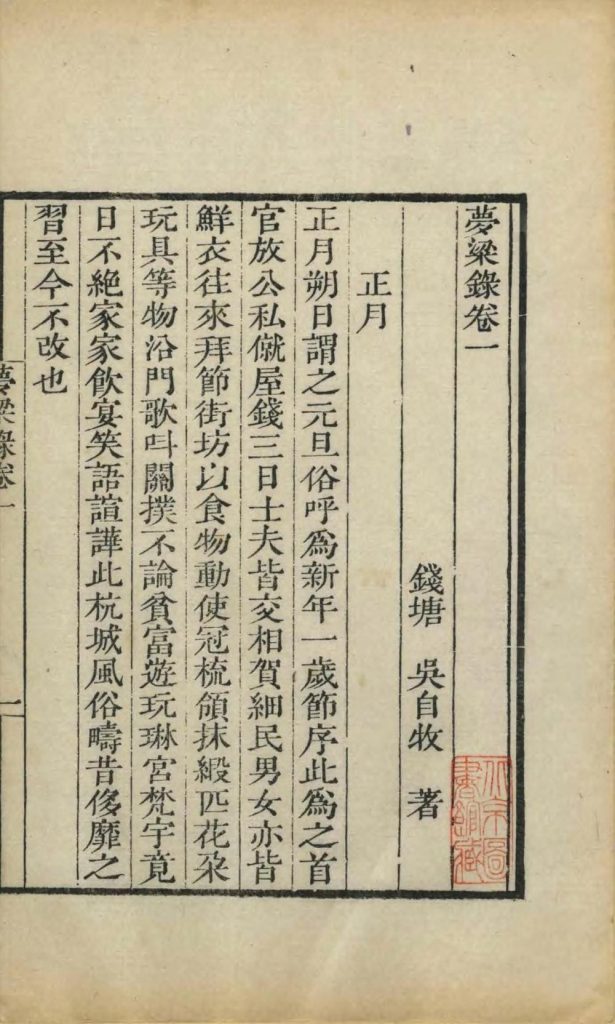 夢粱錄卷一
錢塘 吳自牧 著
正月
正月朔日謂之元旦俗呼爲新年一歲節序此爲之首
官放公私僦屋錢三日士夫皆交相賀細民男女亦皆
鮮衣往來拜節街坊以食物動使冠梳領抹緞匹花朶
玩具等物沿門歌叫關撲不論貧富遊玩琳宮梵宇竟
日不絕家家飮宴笑語諠譁此杭城風俗疇昔侈靡之
習至今不改也
夢粱錄卷一
一